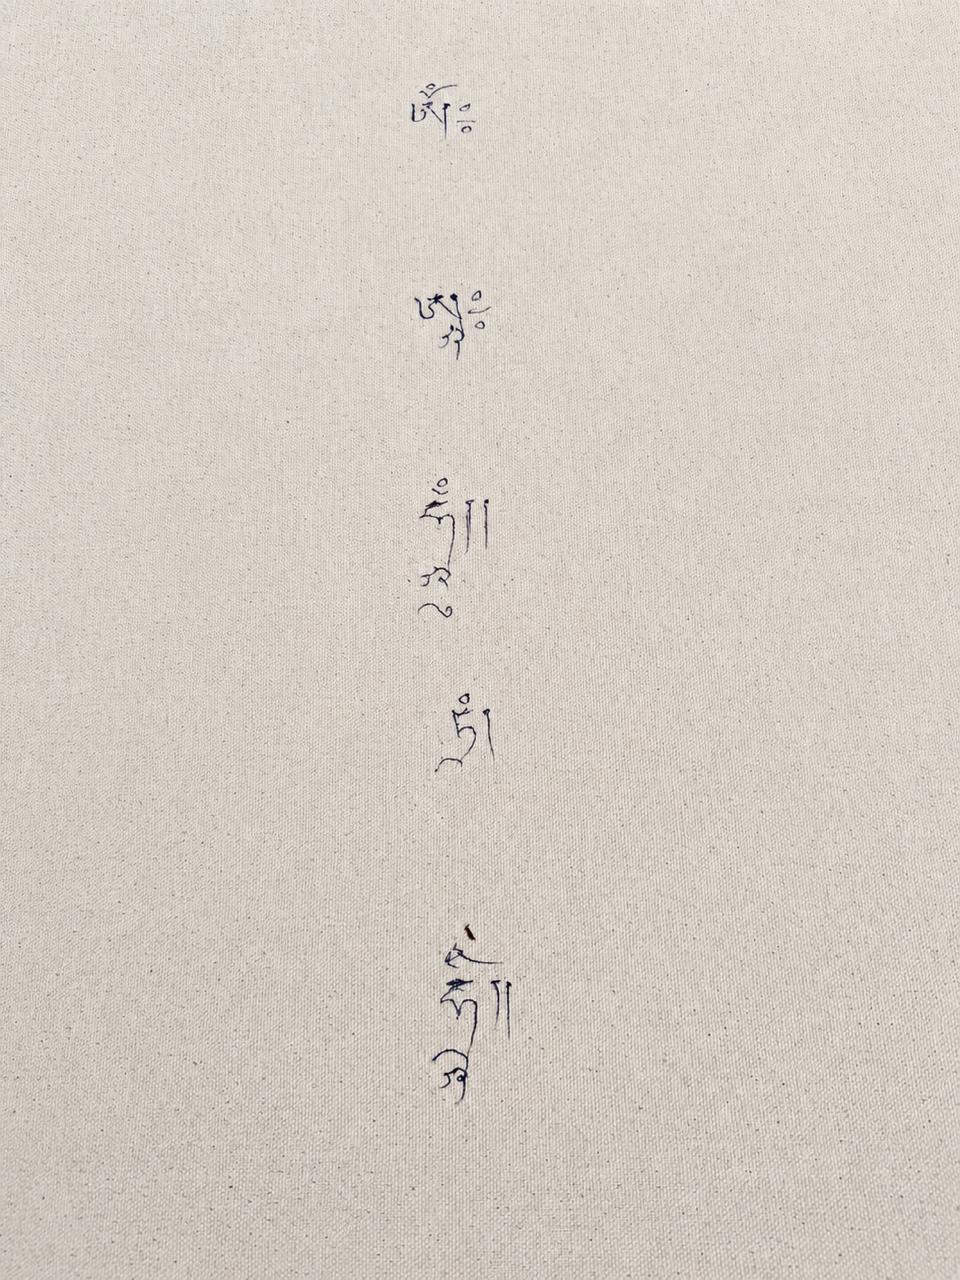 ཨོཾ༔
ཨཱ༔
ཧཱུྃ།།
ཏྲཾ།
ཧྲཱི།།